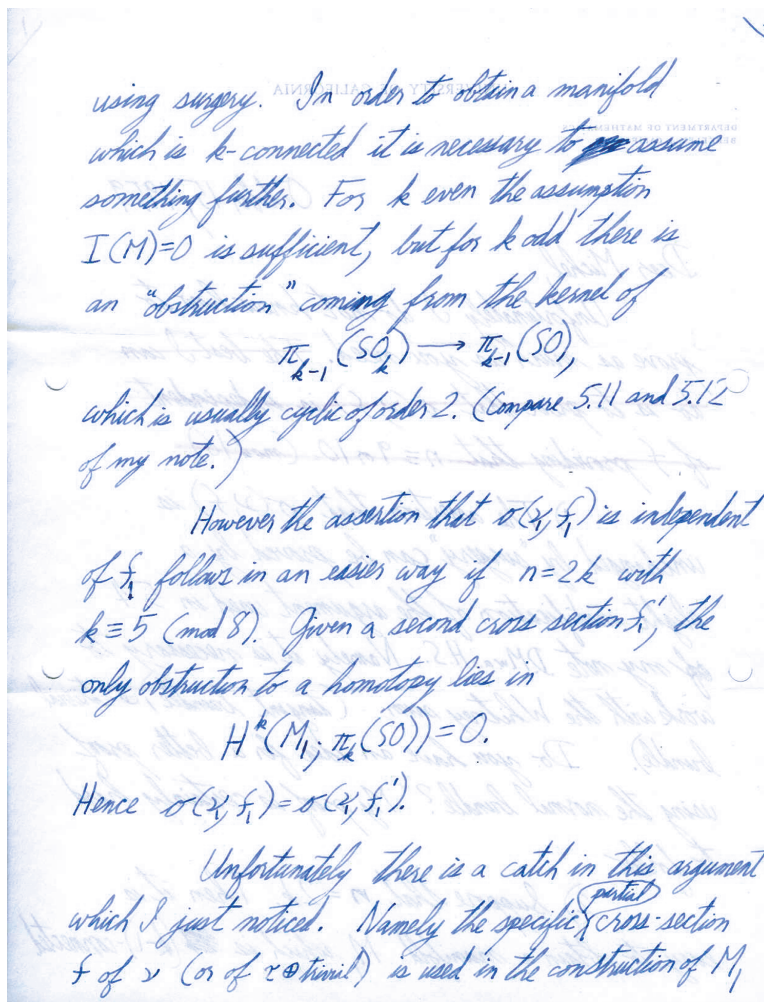 using surgery. In order to obtain a manifold
which is k-connected it is necessary to assume
something further. For k even the assumption
I(M)=0 is sufficient, but for k odd there is
an "obstruction" coming from the kernel of
π_{k-1}(SO_k) → π_{k-1}(SO),
which is usually cyclic of order 2. (Compare 5.11 and 5.12
of my note.)
However the assertion that σ(ν_1, f_1) is independent
of f_1 follows in an easier way if n=2k with
k ≡ 5 (mod 8). Given a second cross section f_1', the
only obstruction to a homotopy lies in
H^k(M_1; π_k(SO)) = 0.
Hence σ(ν_1, f_1) = σ(ν_1, f_1').
Unfortunately there is a catch in this argument
which I just noticed. Namely the specific partial cross-section
f of ν (or of τ⊕trivial) is used in the construction of M_1